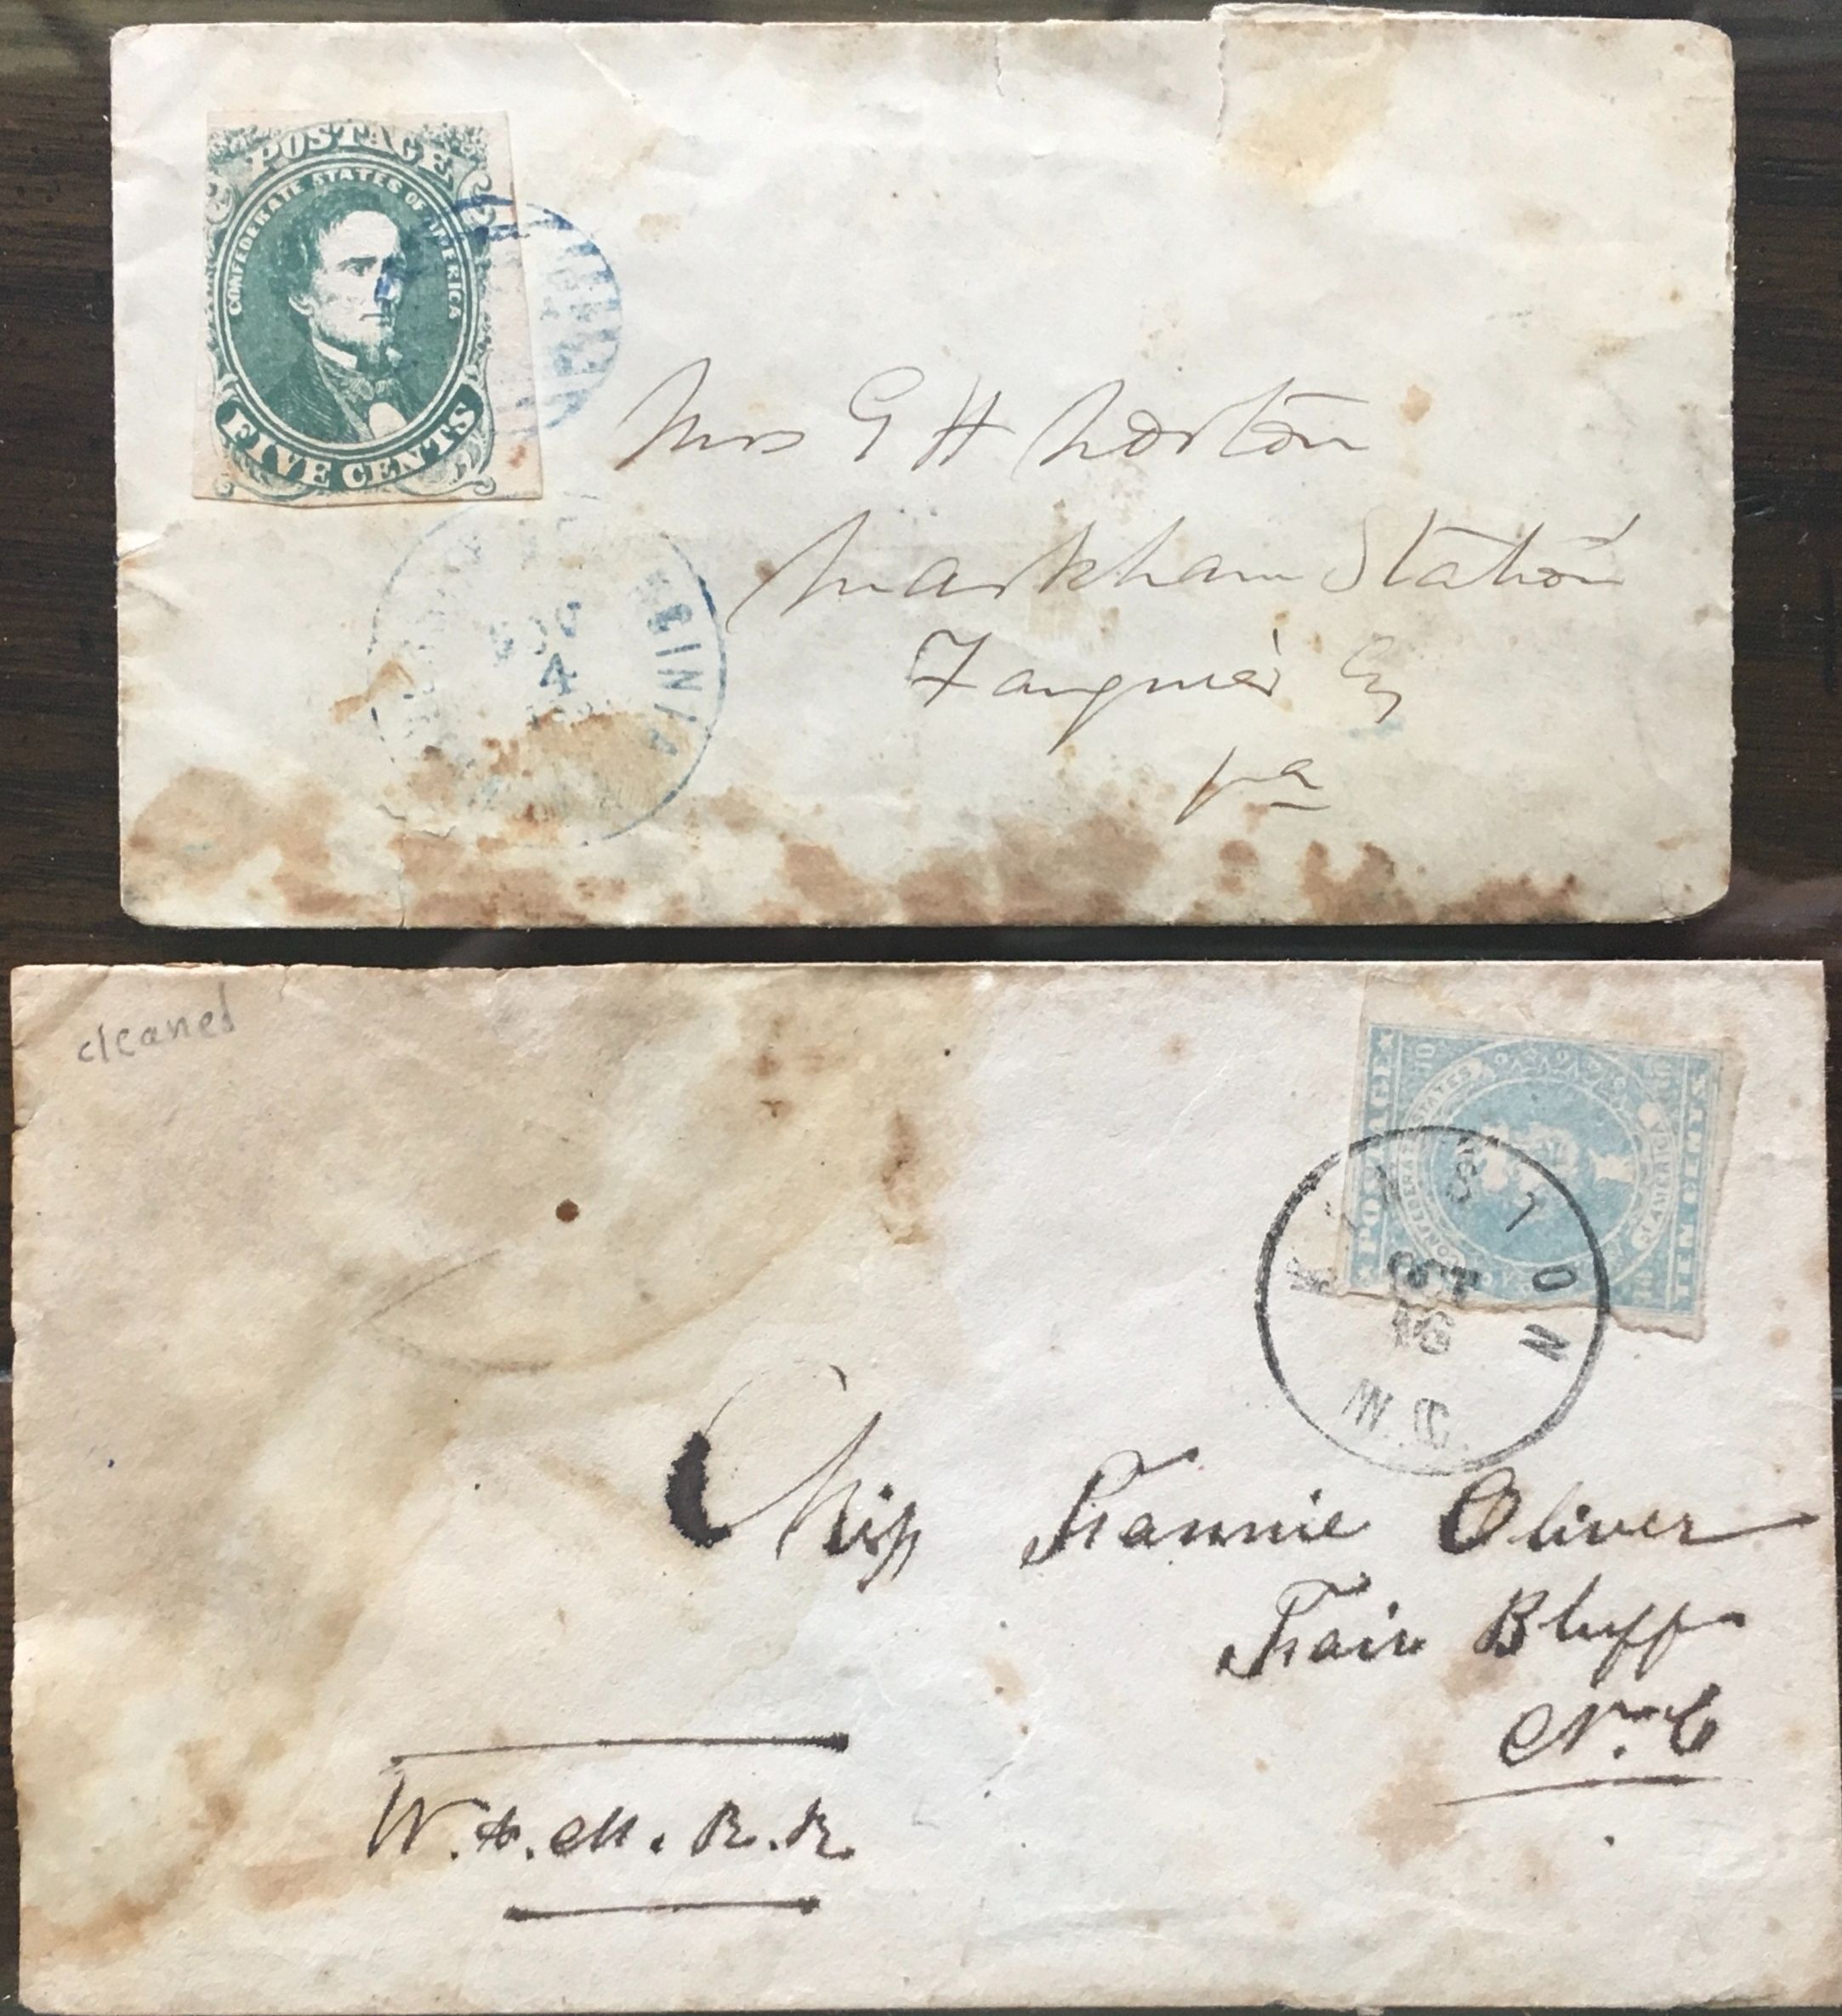 POSTAGE
CONFEDERATE STATES OF AMERICA
FIVE CENTS
Mrs G H Norton
Markham Station
Fauquier Co
Va
NOV
4
cleaned
POSTAGE
CONFEDERATE STATES
OF AMERICA
TEN CENTS
10
KINSTON
OCT
N.C.
Miss Frannie Oliver
Fair Bluff
N. C
W. & M. R. R.